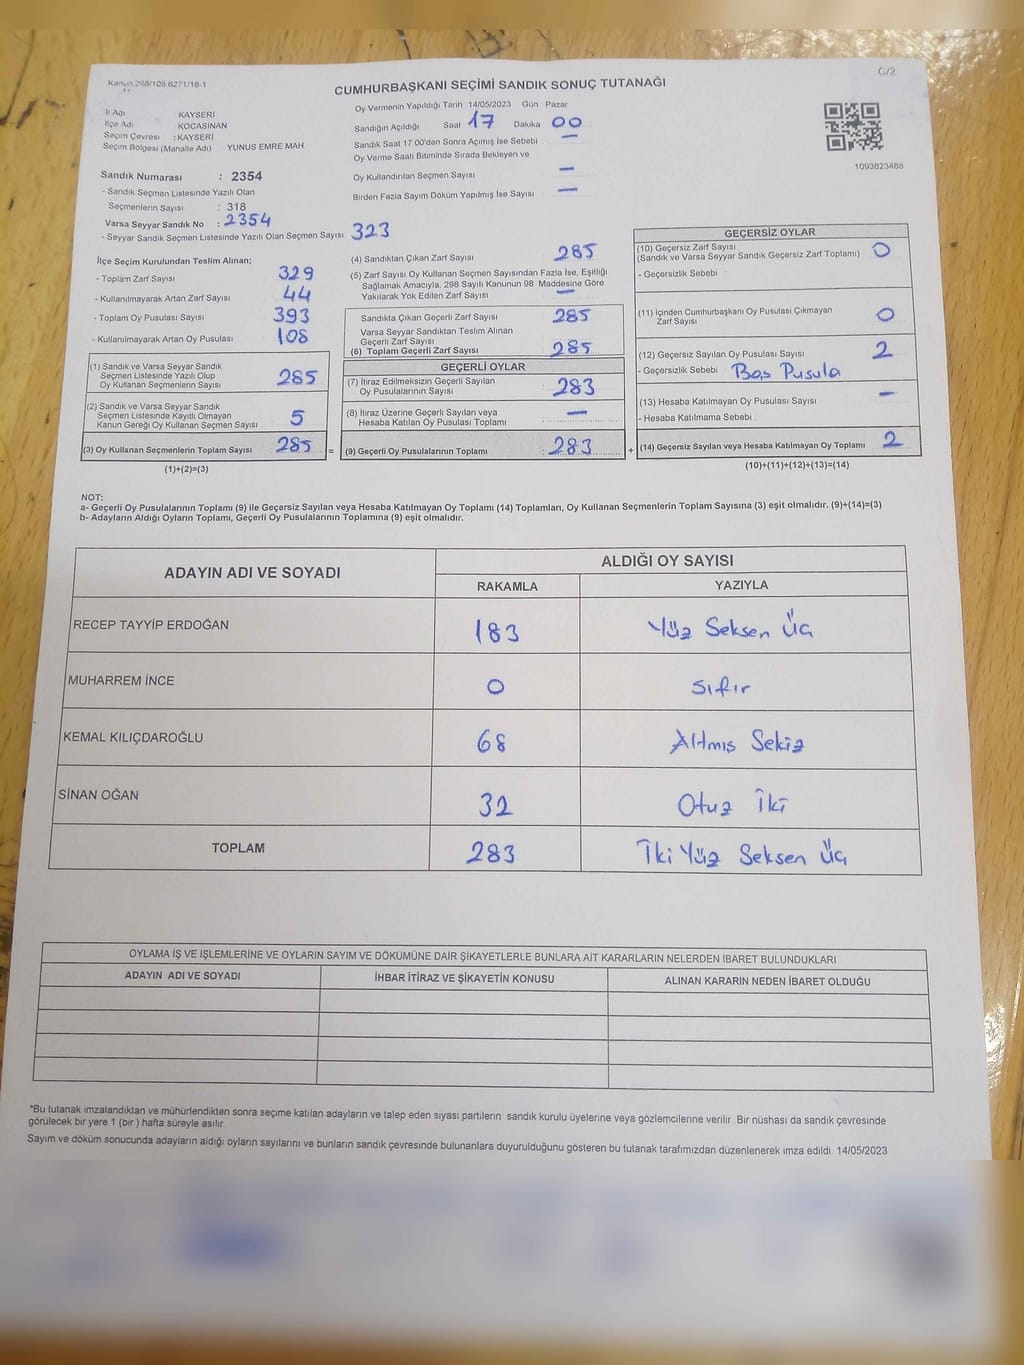 Kanun 298/105 6271/18-1
G/2
CUMHURBAŞKANI SEÇİMİ SANDIK SONUÇ TUTANAĞI
İl Adı KAYSERİ
İlçe Adı KOCASİNAN
Seçim Çevresi : KAYSERİ
Seçim Bölgesi (Mahalle Adı) YUNUS EMRE MAH
Oy Vermenin Yapıldığı Tarih : 14/05/2023 Gün : Pazar
Sandığın Açıldığı Saat 17 Dakika 00
Sandık Saat 17:00'den Sonra Açılmış İse Sebebi —
Oy Verme Saati Bitiminde Sırada Bekleyen ve
Oy Kullandırılan Seçmen Sayısı —
Birden Fazla Sayım Döküm Yapılmış İse Sayısı —
1093823468
Sandık Numarası : 2354
- Sandık Seçmen Listesinde Yazılı Olan
Seçmenlerin Sayısı : 318
Varsa Seyyar Sandık No : 2354
- Seyyar Sandık Seçmen Listesinde Yazılı Olan Seçmen Sayısı 323
İlçe Seçim Kurulundan Teslim Alınan:
- Toplam Zarf Sayısı 329
- Kullanılmayarak Artan Zarf Sayısı 44
- Toplam Oy Pusulası Sayısı 393
- Kullanılmayarak Artan Oy Pusulası 108
(1) Sandık ve Varsa Seyyar Sandık
Seçmen Listesinde Yazılı Olup
Oy Kullanan Seçmenlerin Sayısı 285
(2) Sandık ve Varsa Seyyar Sandık
Seçmen Listesinde Kayıtlı Olmayan
Kanun Gereği Oy Kullanan Seçmen Sayısı 5
(3) Oy Kullanan Seçmenlerin Toplam Sayısı 285 =
(1)+(2)=(3)
(4) Sandıktan Çıkan Zarf Sayısı 285
(5) Zarf Sayısı Oy Kullanan Seçmen Sayısından Fazla İse, Eşitliği
Sağlamak Amacıyla, 298 Sayılı Kanunun 98 Maddesine Göre
Yakılarak Yok Edilen Zarf Sayısı —
Sandıkta Çıkan Geçerli Zarf Sayısı 285
Varsa Seyyar Sandıktan Teslim Alınan
Geçerli Zarf Sayısı
(6) Toplam Geçerli Zarf Sayısı 285
GEÇERLİ OYLAR
(7) İtiraz Edilmeksizin Geçerli Sayılan
Oy Pusulalarının Sayısı 283
(8) İtiraz Üzerine Geçerli Sayılan veya
Hesaba Katılan Oy Pusulası Toplamı —
(9) Geçerli Oy Pusulalarının Toplamı : 283 +
GEÇERSİZ OYLAR
(10) Geçersiz Zarf Sayısı
(Sandık ve Varsa Seyyar Sandık Geçersiz Zarf Toplamı) 0
- Geçersizlik Sebebi :
(11) İçinden Cumhurbaşkanı Oy Pusulası Çıkmayan
Zarf Sayısı 0
(12) Geçersiz Sayılan Oy Pusulası Sayısı 2
- Geçersizlik Sebebi : Boş Pusula
(13) Hesaba Katılmayan Oy Pusulası Sayısı —
- Hesaba Katılmama Sebebi :
(14) Geçersiz Sayılan veya Hesaba Katılmayan Oy Toplamı 2
(10)+(11)+(12)+(13)=(14)
NOT:
a- Geçerli Oy Pusulalarının Toplamı (9) ile Geçersiz Sayılan veya Hesaba Katılmayan Oy Toplamı (14) Toplamları, Oy Kullanan Seçmenlerin Toplam Sayısına (3) eşit olmalıdır. (9)+(14)=(3)
b- Adayların Aldığı Oyların Toplamı, Geçerli Oy Pusulalarının Toplamına (9) eşit olmalıdır.
ADAYIN ADI VE SOYADI
ALDIĞI OY SAYISI
RAKAMLA YAZIYLA
RECEP TAYYİP ERDOĞAN 183 Yüz Seksen Üç
MUHARREM İNCE 0 Sıfır
KEMAL KILIÇDAROĞLU 68 Altmış Sekiz
SİNAN OĞAN 32 Otuz İki
TOPLAM 283 İki Yüz Seksen Üç
OYLAMA İŞ VE İŞLEMLERİNE VE OYLARIN SAYIM VE DÖKÜMÜNE DAİR ŞİKAYETLERLE BUNLARA AİT KARARLARIN NELERDEN İBARET BULUNDUKLARI
ADAYIN ADI VE SOYADI İHBAR İTİRAZ VE ŞİKAYETİN KONUSU ALINAN KARARIN NEDEN İBARET OLDUĞU
*Bu tutanak imzalandıktan ve mühürlendikten sonra seçime katılan adayların ve talep eden siyasi partilerin sandık kurulu üyelerine veya gözlemcilerine verilir Bir nüshası da sandık çevresinde
görülecek bir yere 1 (bir) hafta süreyle asılır.
Sayım ve döküm sonucunda adayların aldığı oyların sayılarını ve bunların sandık çevresinde bulunanlara duyurulduğunu gösteren bu tutanak tarafımızdan düzenlenerek imza edildi. 14/05/2023